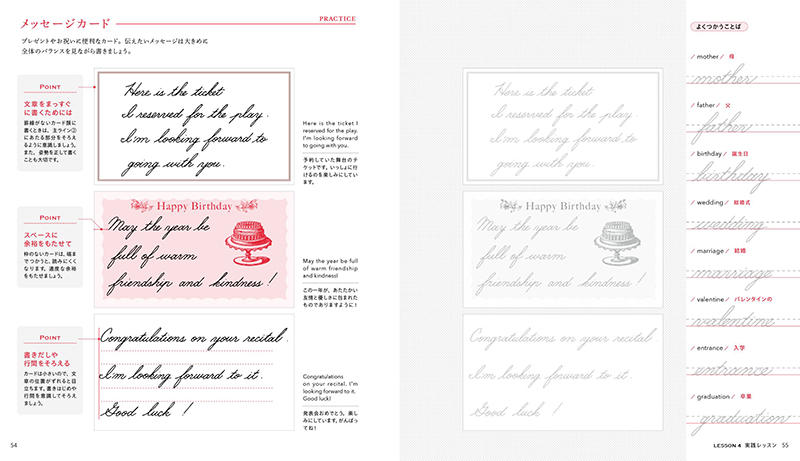 メッセージカード
PRACTICE
プレゼントやお祝いに便利なカード。伝えたいメッセージは大きめに
全体のバランスを見ながら書きましょう。
POINT
文章をまっすぐ
に書くためには
罫線がないカード類に
書くときは、主ライン②
にあたる部分をそろえ
るように意識しましょう。
また、姿勢を正して書く
ことも大切です。
Here is the ticket
I reserved for the play.
I'm looking forward to
going with you.
Here is the ticket I
reserved for the play.
I'm looking forward
to going with you.
予約していた舞台のチ
ケットです。いっしょに行
けるのを楽しみにしてい
ます。
POINT
スペースに
余裕をもたせて
枠のないカードは、端ま
でつかうと、読みにくく
なります。適度な余裕
をもたせましょう。
Happy Birthday
May the year be
full of warm
friendship and kindness!
May the year be full
of warm friendship
and kindness!
この一年が、あたたかい
友情と優しさに包まれた
ものでありますように!
POINT
書きだしや
行間をそろえる
カードは小さいので、文
章の位置がずれると目
立ちます。書きはじめや
行間を意識してそろえ
ましょう。
Congratulations on your recital.
I'm looking forward to it.
Good luck!
Congratulations
on your recital. I'm
looking forward to it.
Good luck!
発表会おめでとう。楽し
みにしています。がんばっ
てね!
54
Here is the ticket
I reserved for the play.
I'm looking forward to
going with you.
Happy Birthday
May the year be
full of warm
friendship and kindness!
Congratulations on your recital
I'm looking forward to it.
Good luck!
よくつかうことば
/ mother / 母
mother
/ father / 父
father
/ birthday / 誕生日
birthday
/ wedding / 結婚式
wedding
/ marriage / 結婚
marriage
/ valentine / バレンタインの
valentine
/ entrance / 入学
entrance
/ graduation / 卒業
graduation
LESSON 4 実践レッスン 55